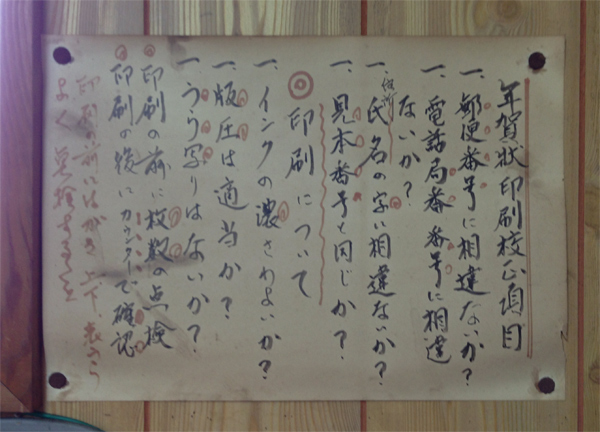 年賀状印刷校正項目
一、郵便番号に相違ないか?
一、電話局番番号に相違
ないか?
一、住所氏名の字に相違ないか?
一、見本番号と同じか?
◎印刷について
一、インクの濃さわよいか?
一、版圧は適当か?
一、うら写りはないか?
印刷の前に枚数の点検
印刷の後にカウンターで確認
印刷の前にはがき上下、表うら
よく